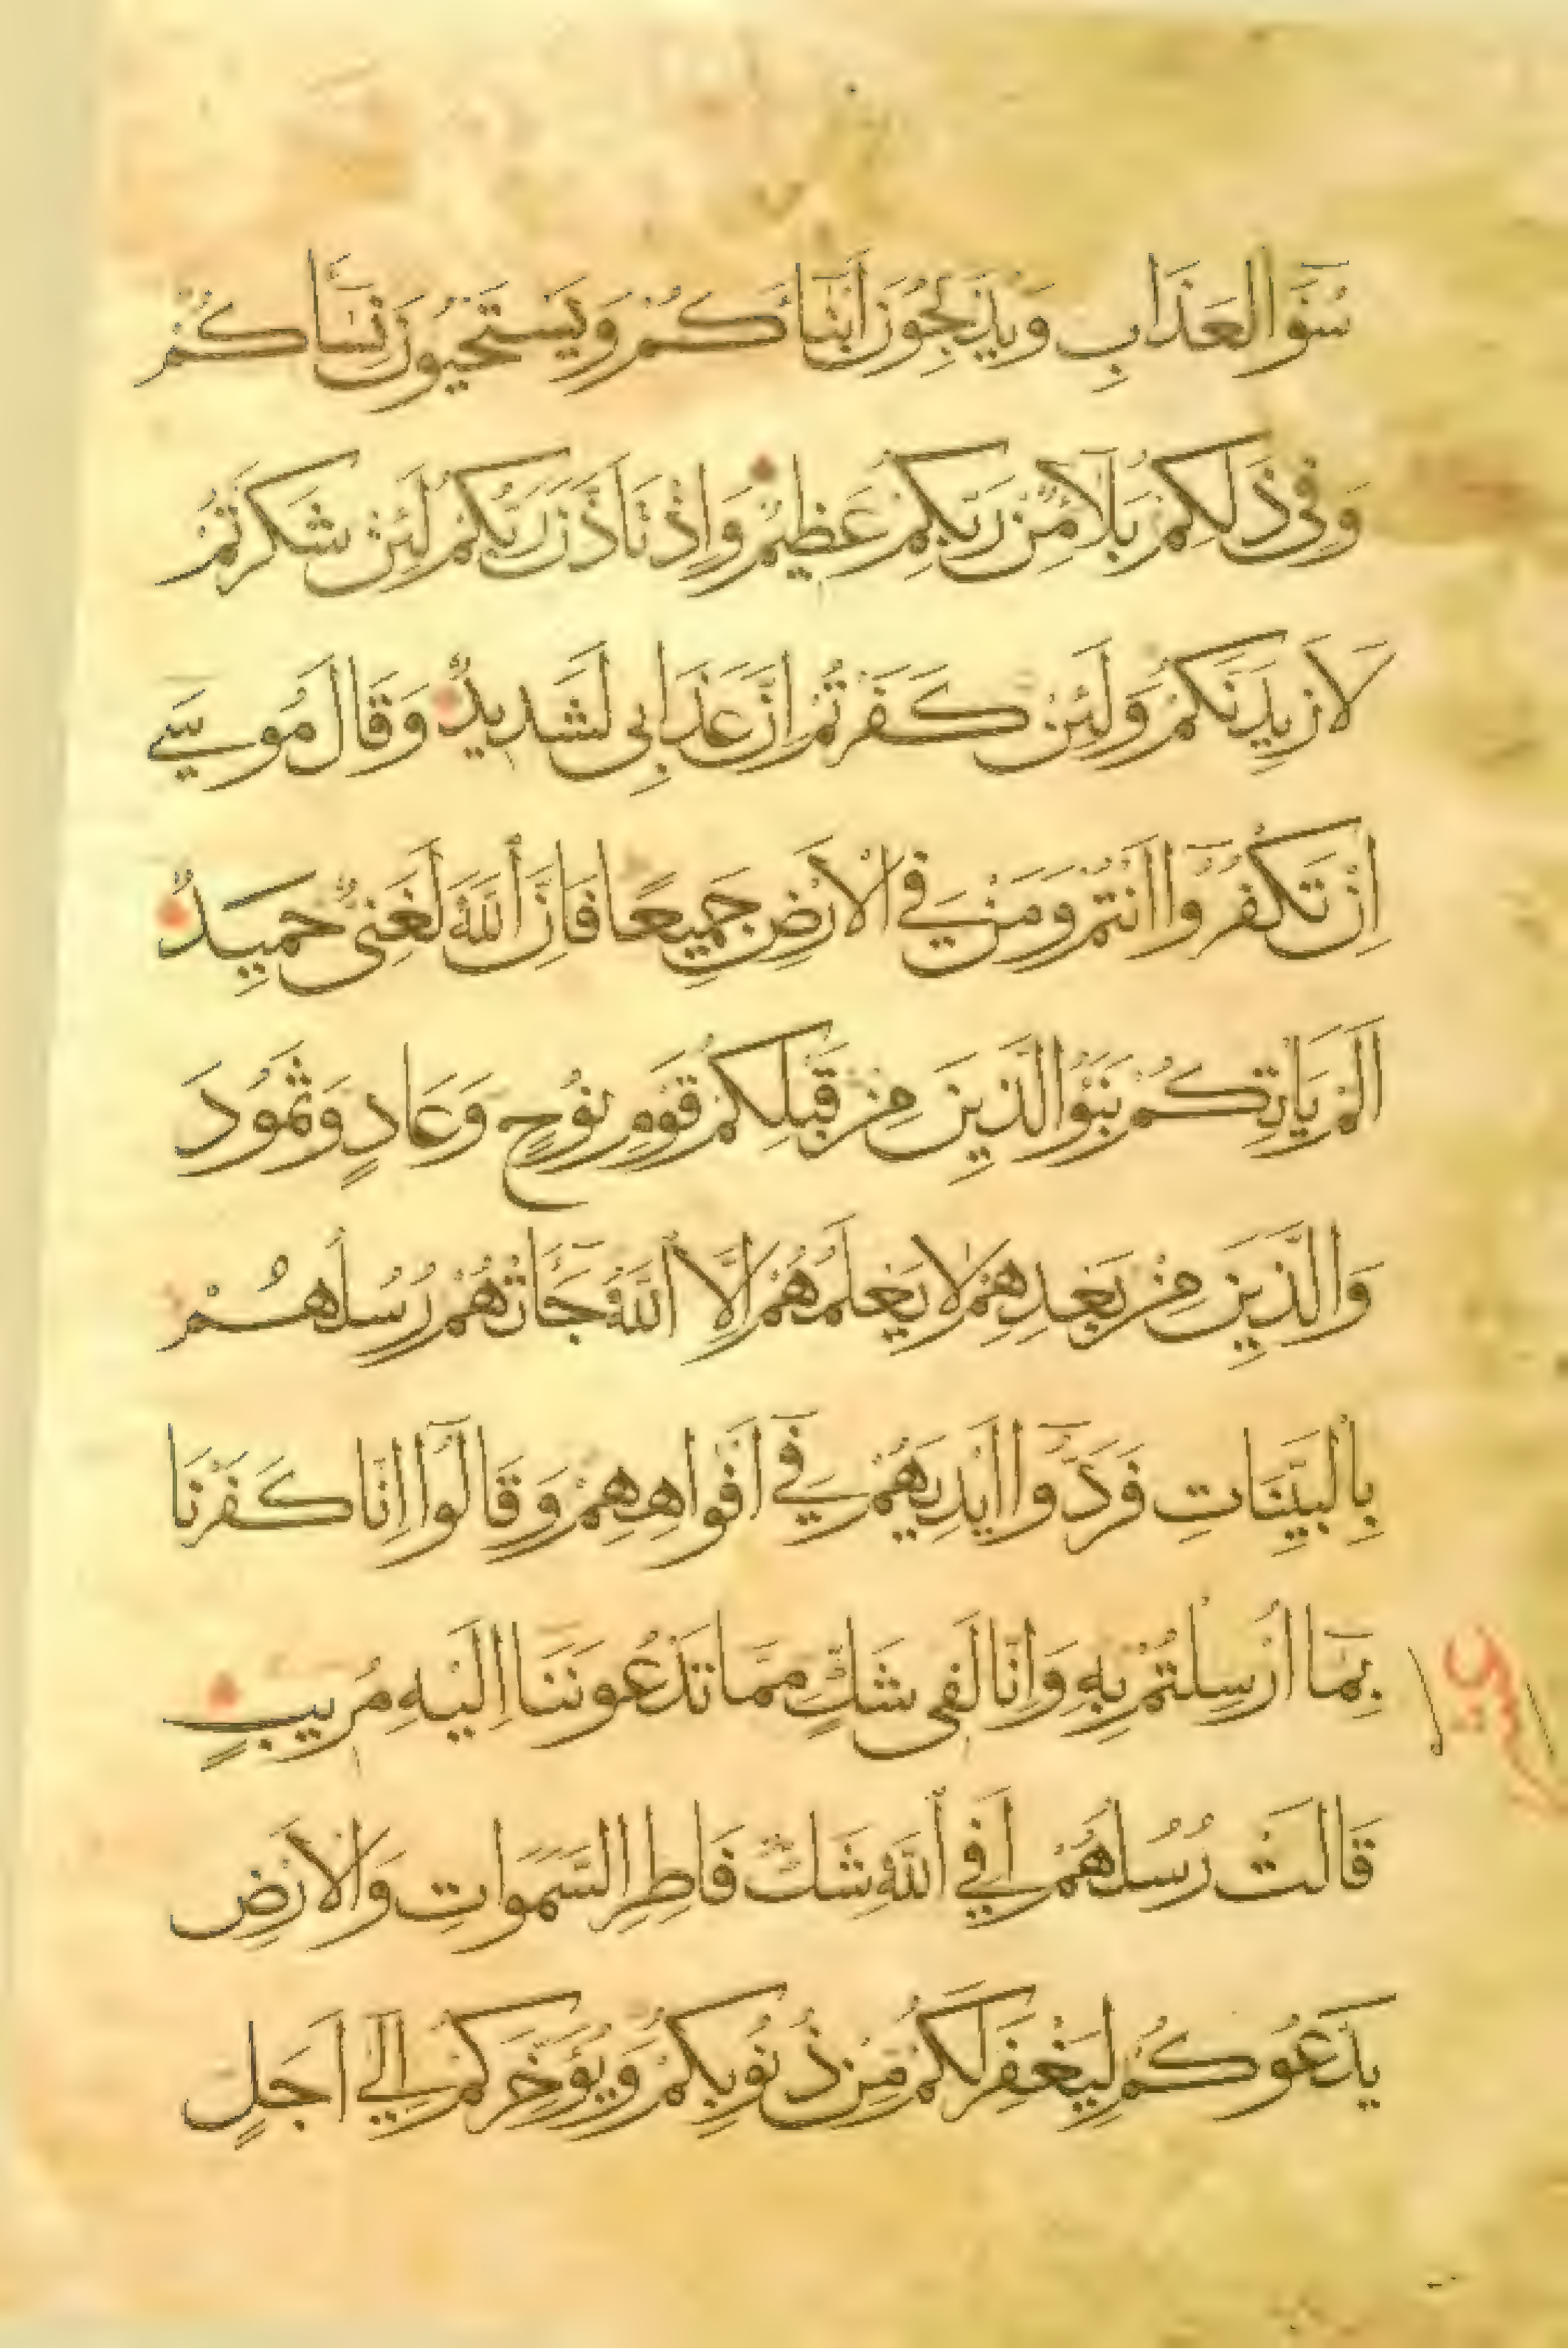 سُوٓءَ الْعَذَابِ وَيُذَبِّحُونَ اَبْنَآءَكُمْ وَيَسْتَحْيُونَ نِسَآءَكُمْ
وَفِى ذٰلِكُمْ بَلَآءٌ مِّنْ رَبِّكُمْ عَظِيمٌ وَاِذْ تَاَذَّنَ رَبُّكُمْ لَئِنْ شَكَرْتُمْ
لَاَزِيدَنَّكُمْ وَلَئِنْ كَفَرْتُمْ اِنَّ عَذَابِى لَشَدِيدٌ وَقَالَ مُوسٰى
اِنْ تَكْفُرُوٓا اَنْتُمْ وَمَنْ فِى الْاَرْضِ جَمِيعًا فَاِنَّ اللّٰهَ لَغَنِىٌّ حَمِيدٌ
اَلَمْ يَاْتِكُمْ نَبَؤُا الَّذِينَ مِنْ قَبْلِكُمْ قَوْمِ نُوحٍ وَعَادٍ وَثَمُودَ
وَالَّذِينَ مِنْ بَعْدِهِمْ لَا يَعْلَمُهُمْ اِلَّا اللّٰهُ جَآءَتْهُمْ رُسُلُهُمْ
بِالْبَيِّنَاتِ فَرَدُّوٓا اَيْدِيَهُمْ فِىٓ اَفْوَاهِهِمْ وَقَالُوٓا اِنَّا كَفَرْنَا
بِمَآ اُرْسِلْتُمْ بِهِ وَاِنَّا لَفِى شَكٍّ مِمَّا تَدْعُونَنَآ اِلَيْهِ مُرِيبٍ
قَالَتْ رُسُلُهُمْ اَفِى اللّٰهِ شَكٌّ فَاطِرِ السَّمَوَاتِ وَالْاَرْضِ
يَدْعُوكُمْ لِيَغْفِرَ لَكُمْ مِنْ ذُنُوبِكُمْ وَيُؤَخِّرَكُمْ اِلٰٓى اَجَلٍ